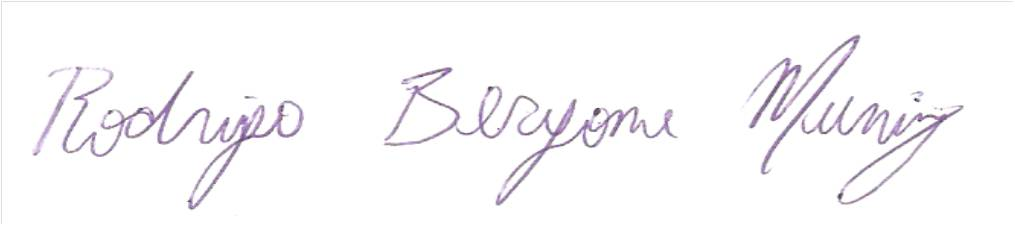 Rodrigo Bergome Muniz